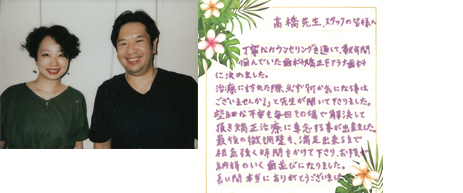 高橋先生、スタッフの皆様へ
丁寧なカウンセリングを通して、数年間
悩んでいた歯科矯正をアラナ歯科
に決めました。
治療に訪れた際、必ず「何か気になる事は
ございませんか?」と先生が聞いて下さりました。
些細な不安も毎回その場で解決して
頂き矯正治療に専念する事が出来ました。
最後の微調整も、満足出来るまで
根気強く時間をかけて下さり、お陰で
納得のいく歯並びになりました。
長い間本当にありがとうございました。